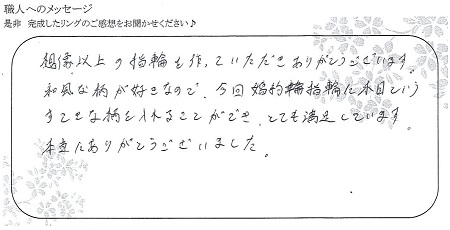 職人へのメッセージ
是非 完成したリングのご感想をお聞かせください♪
想像以上の指輪を作っていただきありがとうございます。
和風な柄が好きなので、今回婚約指輪に木目という
すてきな柄を入れることができ、とても満足しています。
本当にありがとうございました。